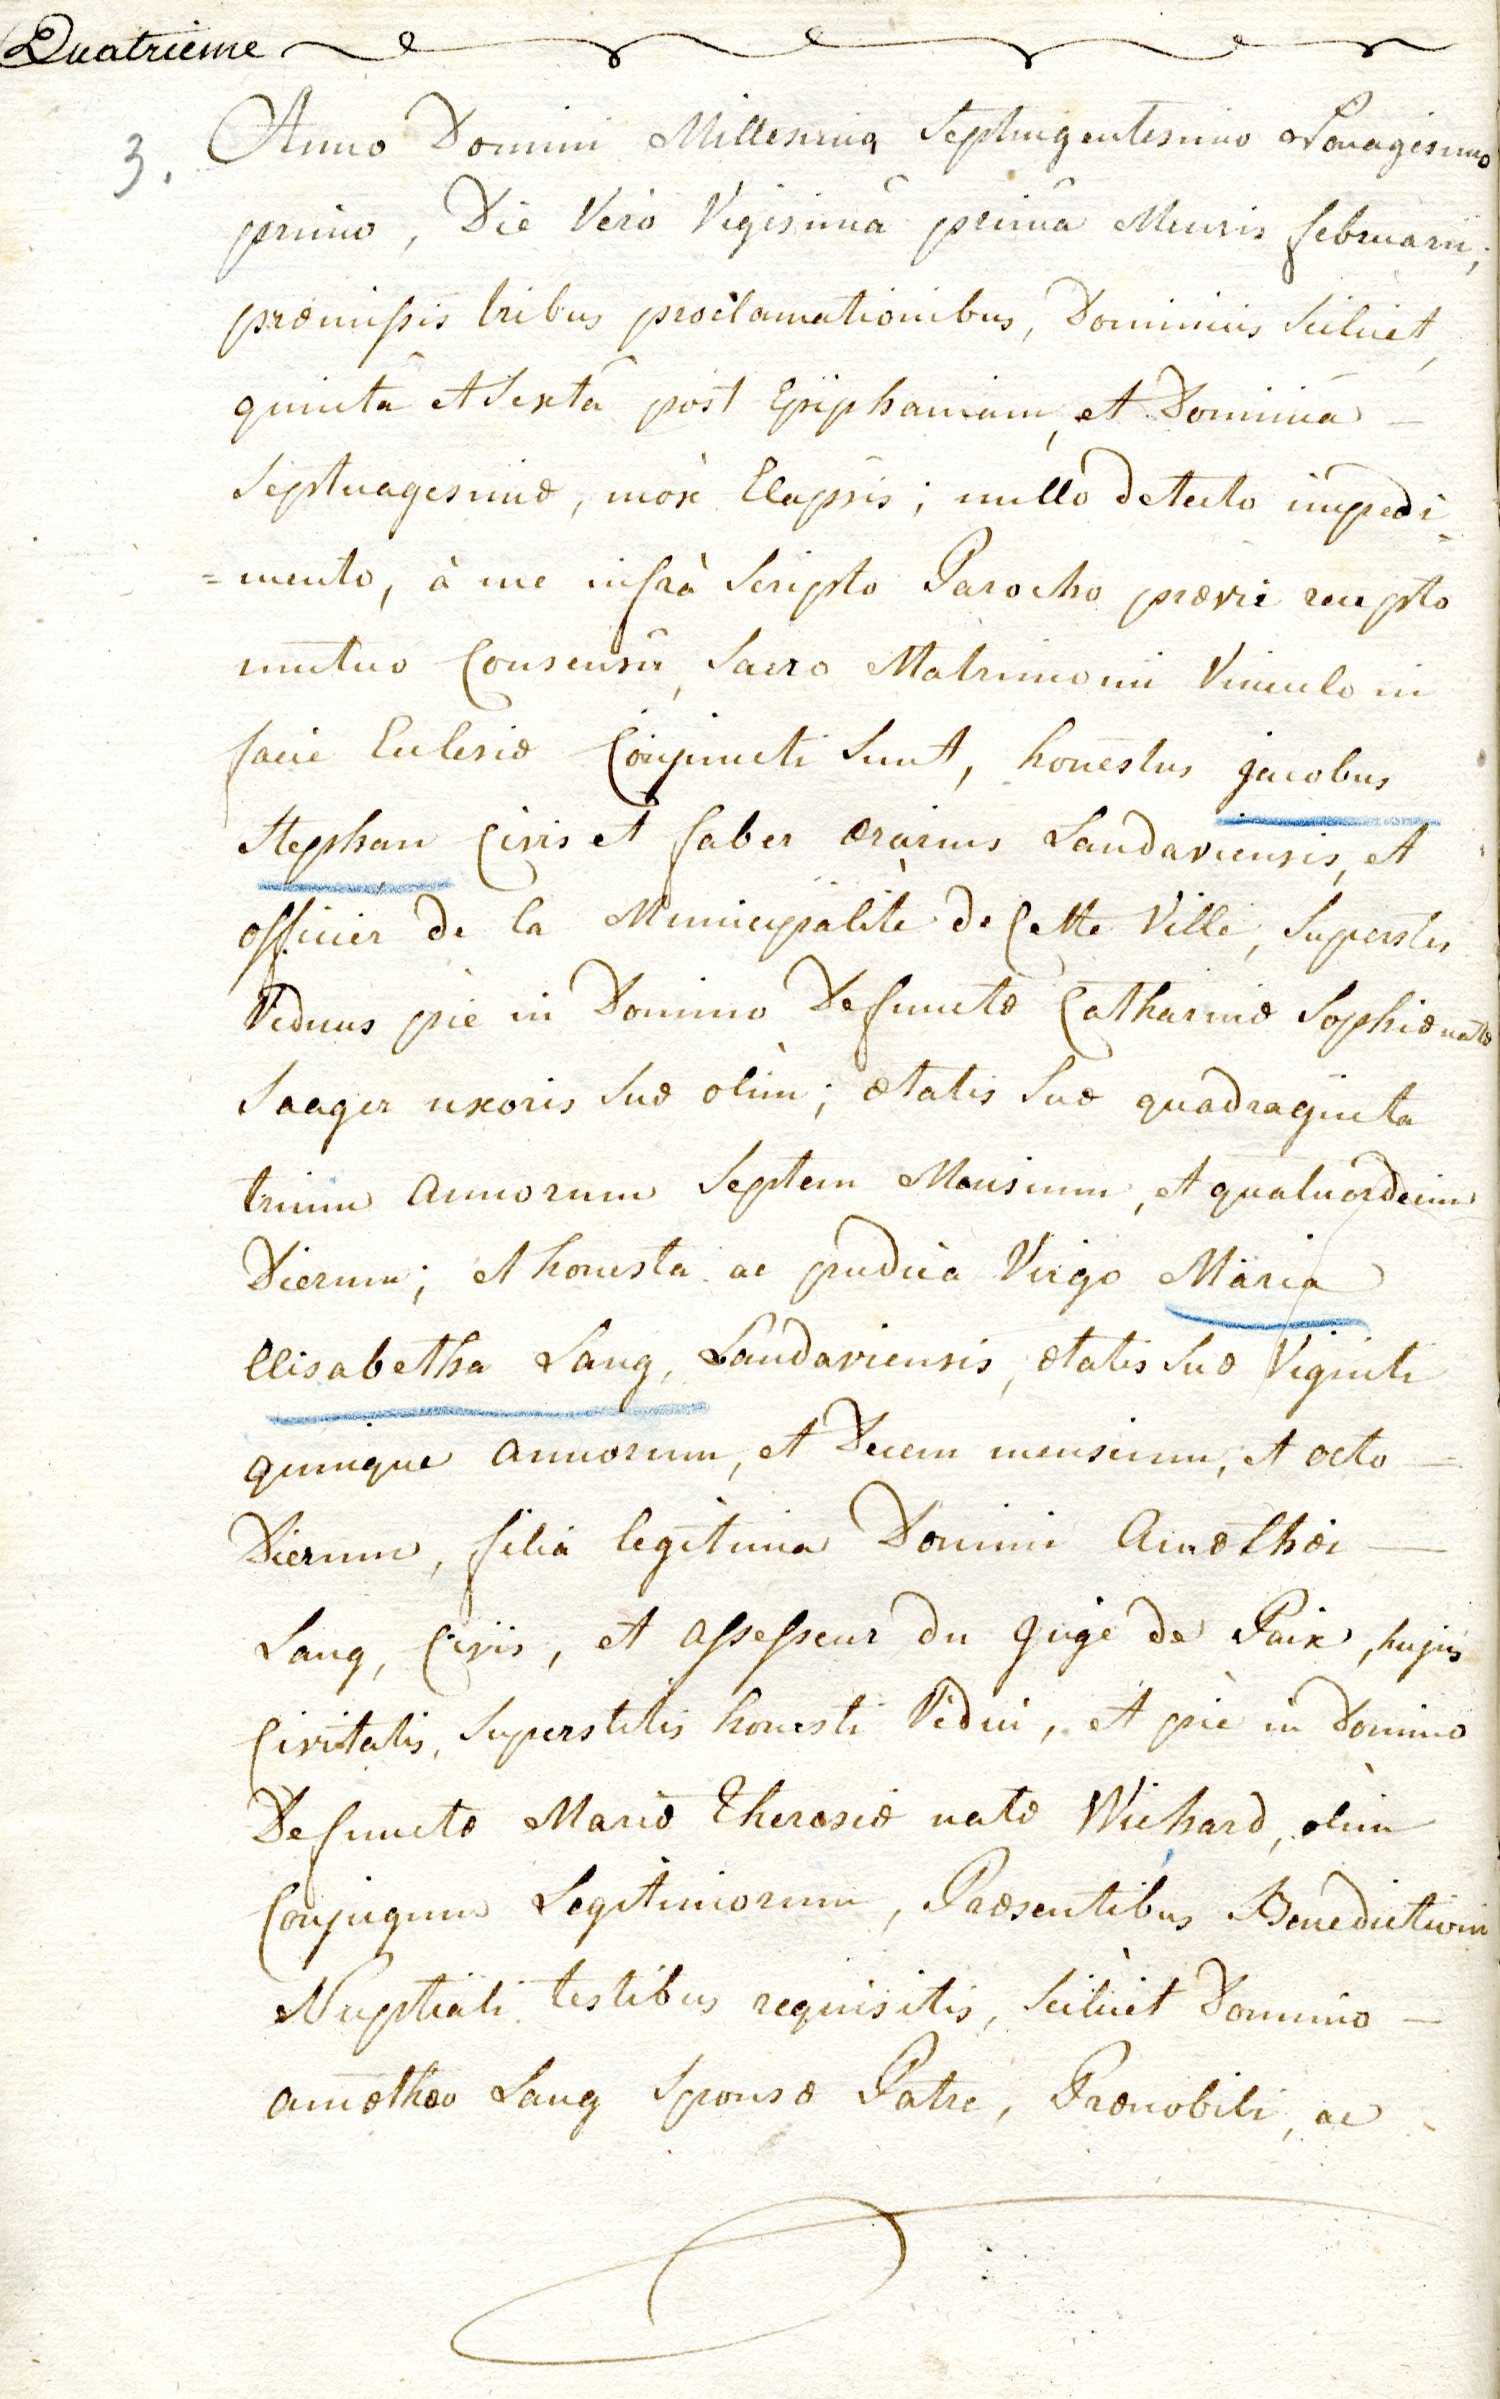 Quatrieme
3. Anno Domini Millesimo Septingentesimo Nonagesimo
primo, Die Vero Vigesimâ primâ Mensis februarii,
præmissis tribus proclamationibus, Dominicis Scilicet,
quintâ et Sextâ post Epiphaniam, et Dominicâ
Septuagesimæ, mox Elapsis; nullo detecto impedi=
=mento, à me infrà Scripto Parocho prævie recepto
mutuo Consensû, Sacro Matrimonii Vinculo in
facie Ecclesiæ Conjuncti Sunt, honestus jacobus
Stephan Civis et faber ærarius Landaviensis, et
officier de la Municipalité de Cette Ville, Superstes
Viduus piè in Domino Defunctæ Catharinæ Sophiæ natæ
Saager uxoris Suæ olim; ætatis Suæ quadraginta
trium annorum Septem Mensium, et quatuordecim
Dierum; et honesta ac pudica Virgo Maria
Elisabetha Lang, Landaviensis, ætatis Suæ Viginti
quinque annorum, et Decem mensium, et octo
Dierum, filia legitima Domini Amæthæi
Lang, Civis, et assesseur du Juge de Paix, hujus
Civitatis, Superstitis honesti Vidui, et piè in Domino
Defunctæ Mariæ Theresiæ natæ Wichard, olim
Conjugum Legitimorum, Præsentibus Benedictioni
Nuptiali testibus requisitis, Scilicet Domino
amæthæo Lang Sponsæ Patre, Prænobili, ac